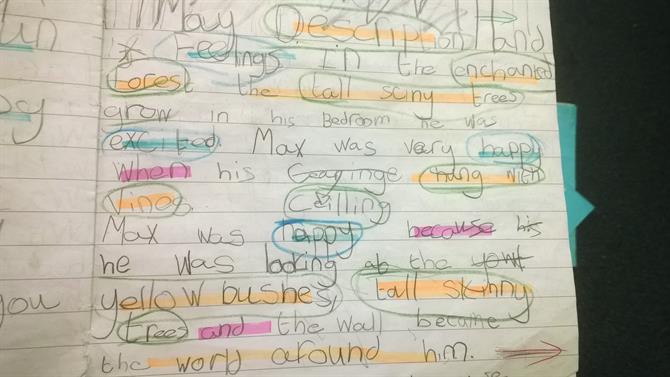 by Description and
Feelings. In the enchanted
Forest the tall sciny trees
grow in his Bedroom he was
excited. Max was very happy
When his hung with
Vines. Ceilling
Max was happy because his
he was looking at the
yellow bushes, tall skinny
trees and the wall became
the world around him.
un
you